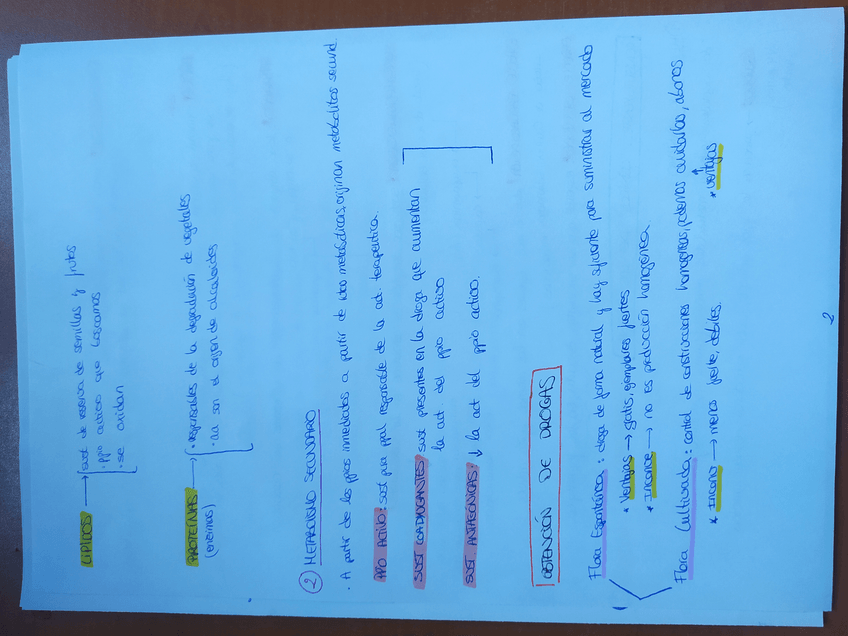 LÍPIDOS → sust de reserva de semillas y frutos
· ppio activo que buscamos
· se oxidan
PROTEÍNAS → · responsables de la degradación de vegetales
(enzimas) · aa son el origen de alcaloides
② METABOLISMO SECUNDARIO
· A partir de los ppios inmediatos a partir de rutas metabólicas, originan metabolitos secund.
PPIO ACTIVO: sust pura ppal responsable de la act. terapéutica.
SUST COADYUVANTES: sust presentes en la droga que aumentan
la act. del ppio activo
SUST ANTAGÓNICAS: ↓ la act del ppio activo.
OBTENCIÓN DE DROGAS
Flora Espontánea: droga de forma natural y hay suficiente para suministrar al mercado
* Ventajas → gratis, ejemplares fuertes
* Inconve → no es producción homogénea
Flora Cultivada: control de construcciones homogéneas, podemos cuidarlas, abonos
* Inconv → menos fuerte, débiles. * Ventajas
2